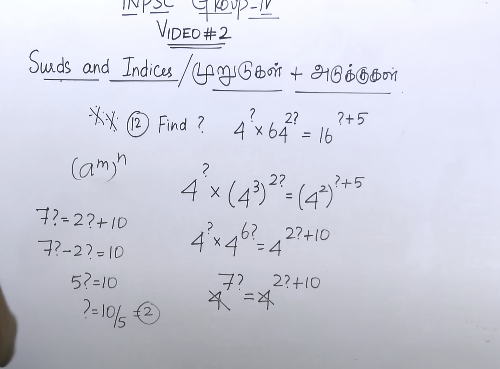 TNPSC GROUP-IV
VIDEO #2
Surds and Indices / முறுடுகள் + அடுக்குகள்
** ⑫ Find ? 4^? × 64^2? = 16^?+5
(a^m)^n
4^? × (4^3)^2? = (4^2)^?+5
7? = 2? + 10
4^? × 4^6? = 4^2?+10
7? - 2? = 10
5? = 10
4^7? = 4^2?+10
? = 10/5 = ②